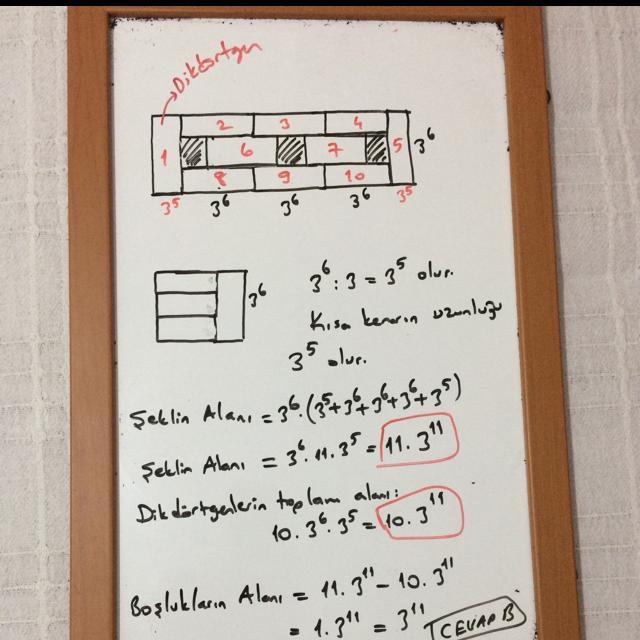 Dikdörtgen
2 3 4
1 6 7 5 3⁶
8 9 10
3⁵ 3⁶ 3⁶ 3⁶ 3⁵
3⁶
3⁶ : 3 = 3⁵ olur.
Kısa kenarın uzunluğu
3⁵ olur.
Şeklin Alanı = 3⁶.(3⁵+3⁶+3⁶+3⁶+3⁵)
Şeklin Alanı = 3⁶.11.3⁵ = 11.3¹¹
Dikdörtgenlerin toplam alanı:
10.3⁶.3⁵ = 10.3¹¹
Boşlukların Alanı = 11.3¹¹ - 10.3¹¹
= 1.3¹¹ = 3¹¹ CEVAP B